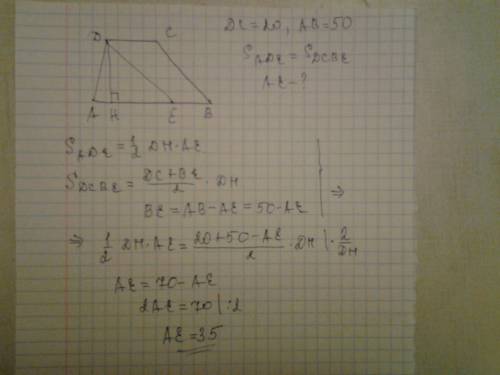 D C
A H E B
DC = 20, AB = 50
S_ADE = S_DCBE
AE - ?
S_ADE = 1/2 DH · AE
S_DCBE = (DC + BE)/2 · DH
BE = AB - AE = 50 - AE
⇒
⇒ 1/2 DH · AE = (20 + 50 - AE)/2 · DH | · 2/DH
AE = 70 - AE
2AE = 70 | :2
AE = 35